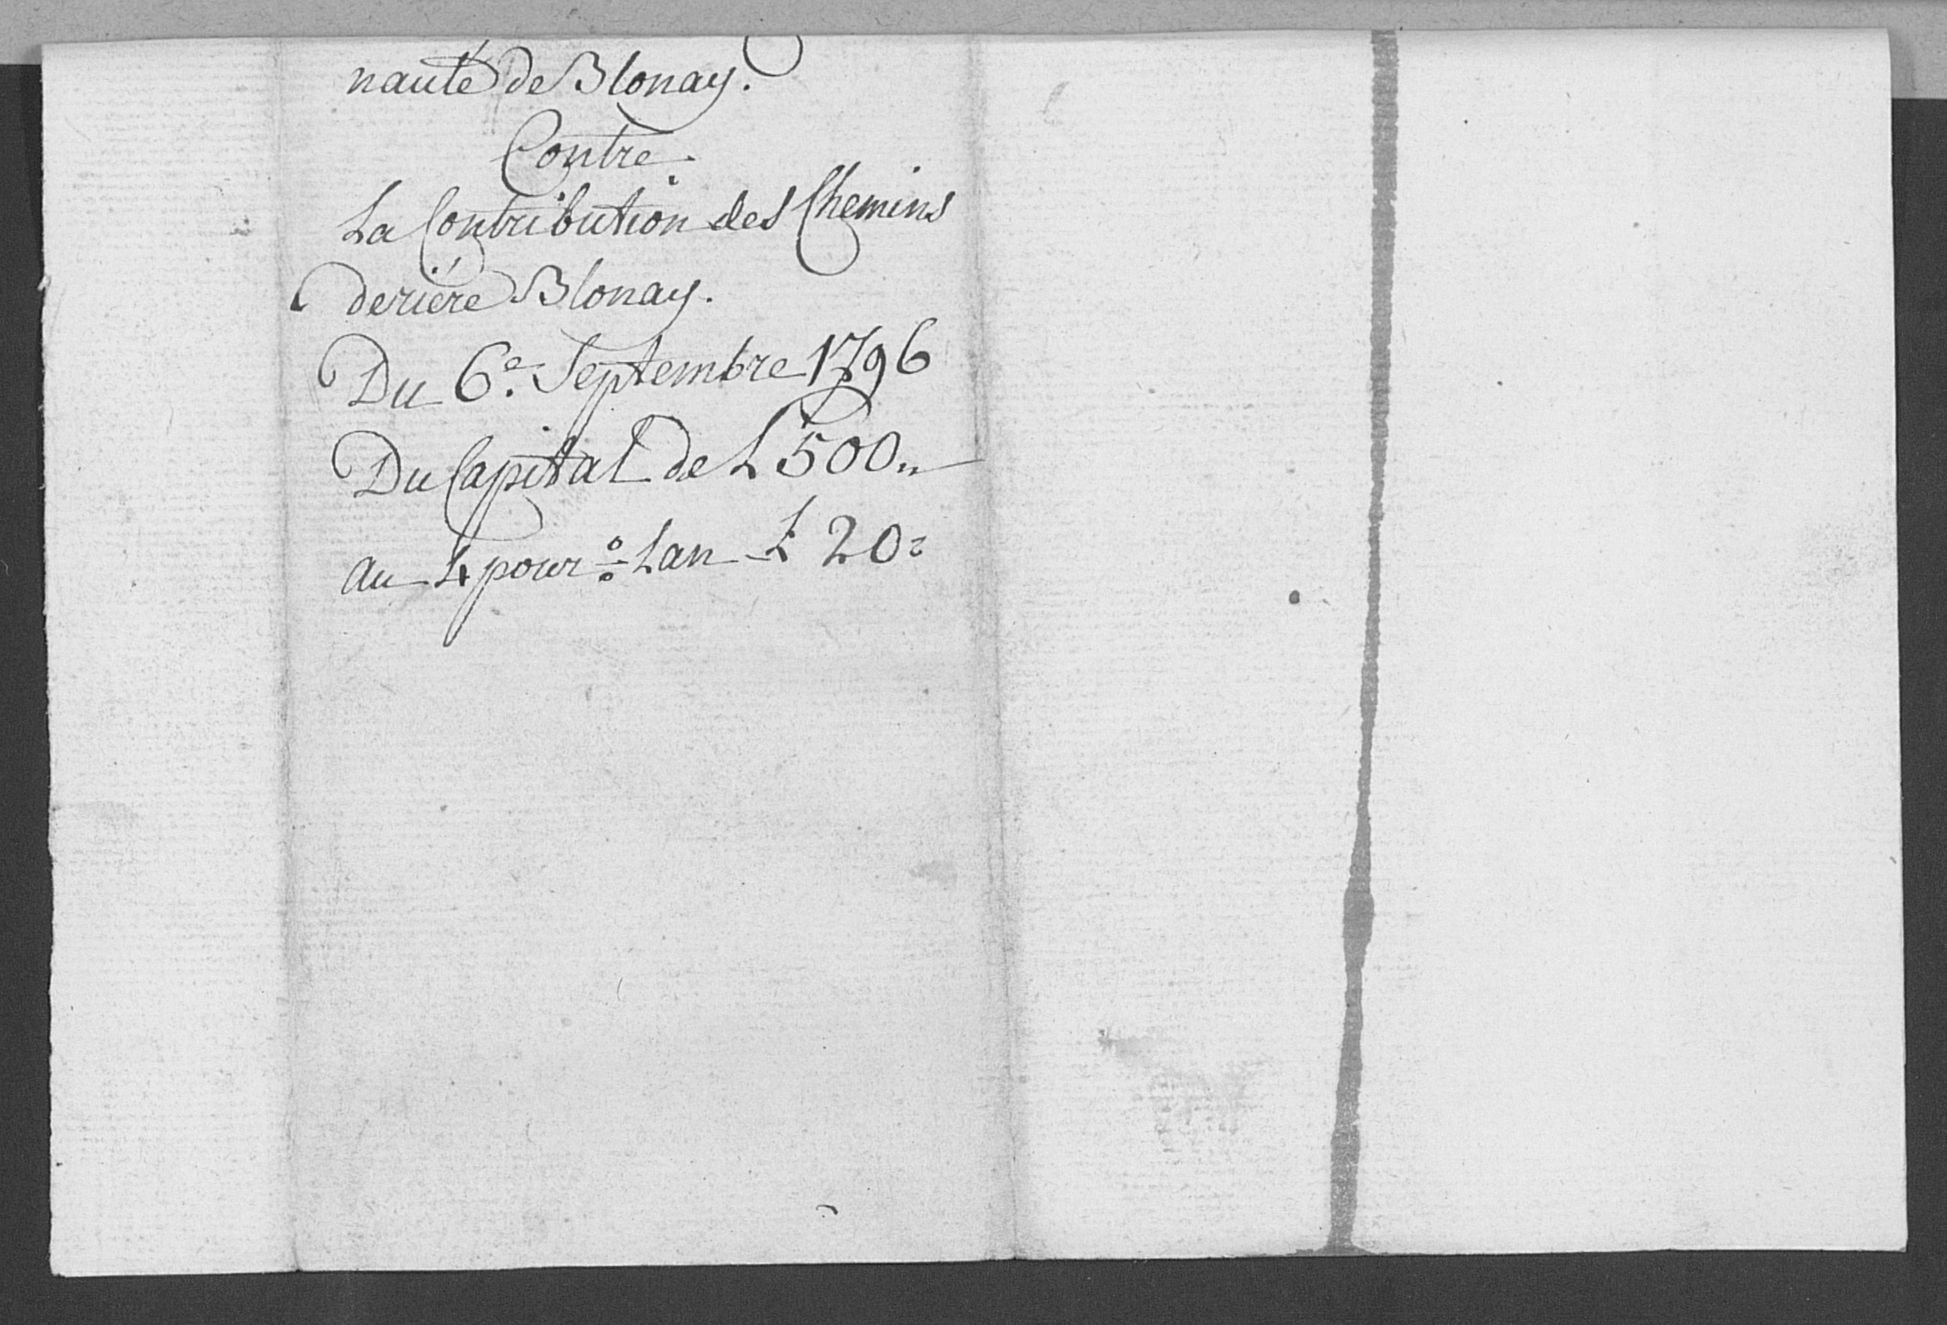 nauté de Blonay.
Contre.
La Contribution des Chemins
deriére Blonay.
Du 6e. Septembre 1796
Du Capital de L 500,,
au 4 pour % Lan L 20=